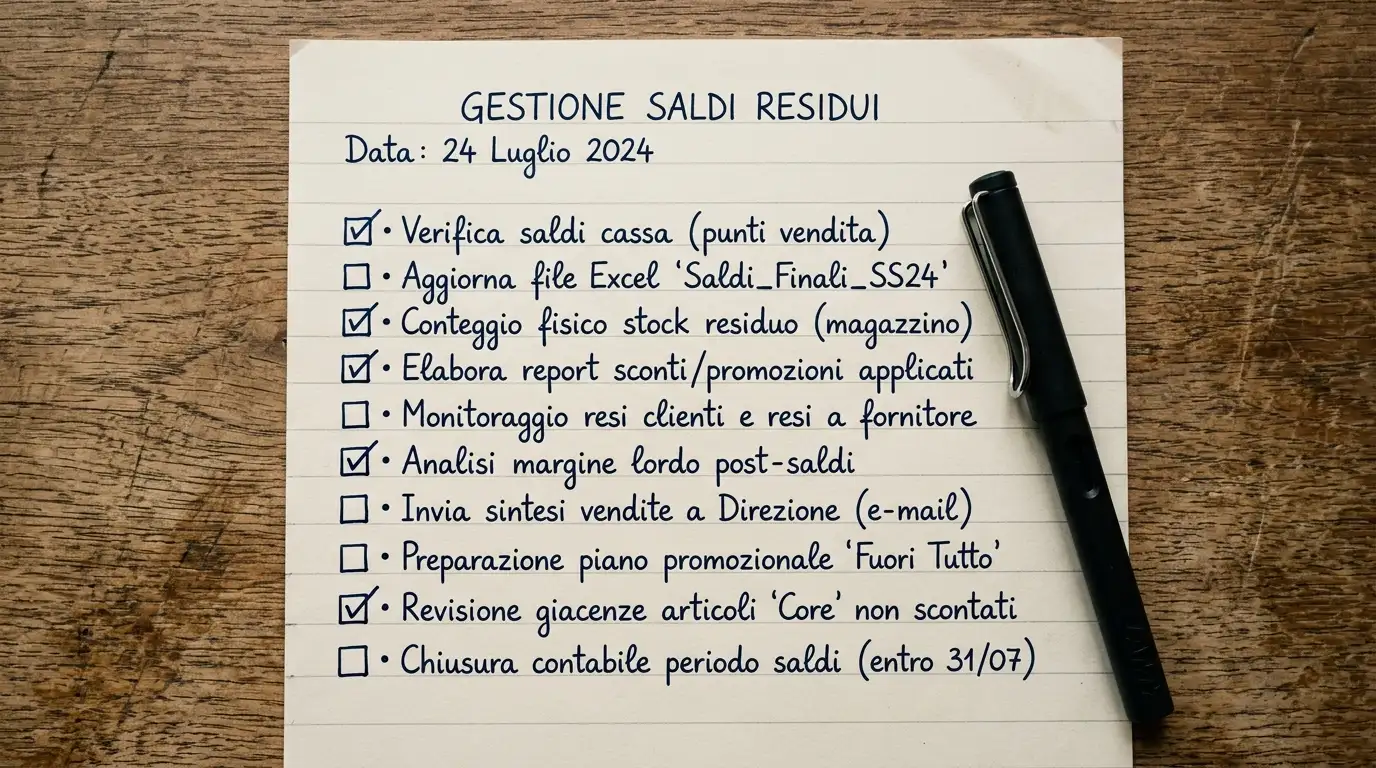 GESTIONE SALDI RESIDUI
Data: 24 Luglio 2024
☑ • Verifica saldi cassa (punti vendita)
☐ • Aggiorna file Excel 'Saldi_Finali_SS24'
☑ • Conteggio fisico stock residuo (magazzino)
☑ • Elabora report sconti/promozioni applicati
☐ • Monitoraggio resi clienti e resi a fornitore
☑ • Analisi margine lordo post-saldi
☐ • Invia sintesi vendite a Direzione (e-mail)
☐ • Preparazione piano promozionale 'Fuori Tutto'
☑ • Revisione giacenze articoli 'Core' non scontati
☐ • Chiusura contabile periodo saldi (entro 31/07)